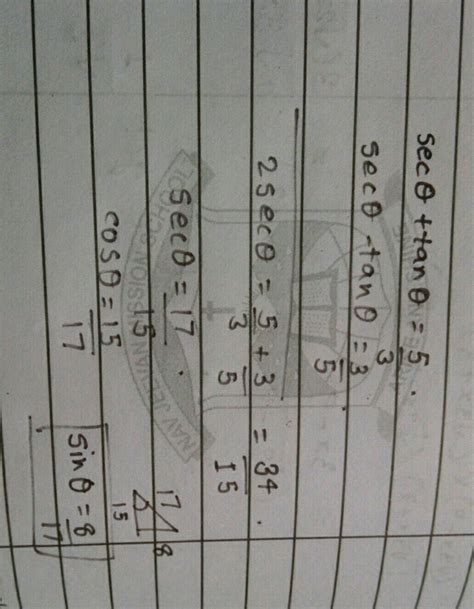 secθ + tanθ = 5/3 .
secθ - tanθ = 3/5
2secθ = 5/3 + 3/5 = 34/15 .
secθ = 17/15 .
cosθ = 15/17
17 8
15
sinθ = 8/17
NAV JEEVAN MISSION SCHOOL